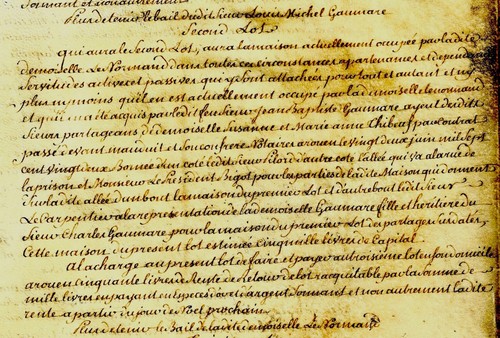 sonnant et non autrement
Pour devenir le bail dudit Sieur Louis Michel Gaumare
Second Lot
qui aura le Second Lot, aura la maison actuellement occupée par ladite
demoiselle Le Normand dans toutes ces circonstances apartenances et dependances
Servitudes actives et passives qui y sont attachées pour tout et autant et ny
plus ny moins qu'il en est actuellement occupé par la demoiselle le normand
et qui a été acquis par ledit feu Sieur Jean Baptiste Gaumare ayeul desdits
Sieurs partageans de demoiselle Susanne et Marie anne Thibeuf par contrat
passé devant mauduit et Son confrere Notaires a rouen le vingt deux juin mil sept
cent vingt deux Bornée d'un coté ledit Sieur d'autre coté l'allée qui va a la rue de
la prison et Monsieur Le President Bigot pour les parties de ladite Maison qui donnent
Sur ladite allée d'un bout la maison du premier Lot et d'autre bout ledit Sieur
Le Carpentier a la representation de la demoiselle Gaumare fille et heritiere du
Sieur Charles Gaumare pour la maison du premier Lot des partages Susdatés
Cette maison du present lot estimée cinq mille livres de Capital
A la charge au present lot de faire et payer au troisieme lot en fond
a rouen cinquante livres de Rente de Retour de lot racquitable par la somme de
mille livres en payant en Especes d'or et d'argent Sonnant et non autrement ladite
rente a partir du jour de Noel prochain
Pour devenir le Bail de ladite demoiselle Le Normand